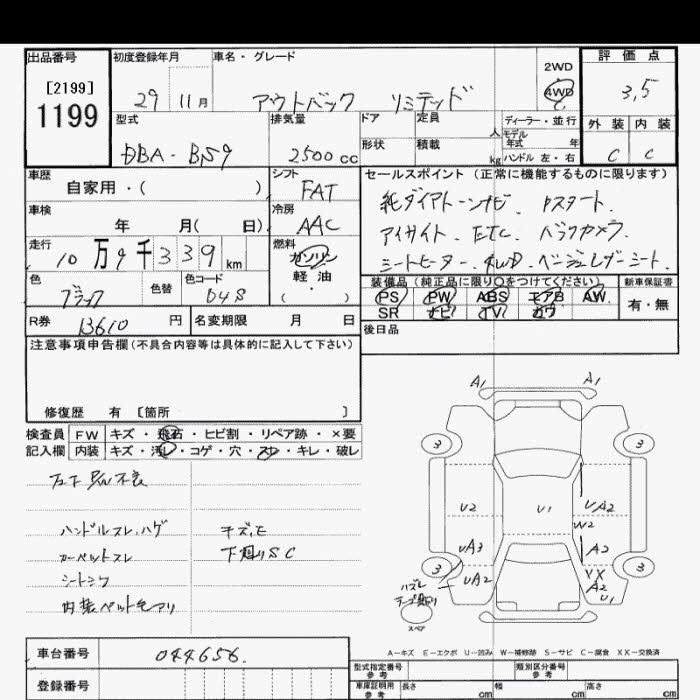 出品番号
[2199]
1199
初度登録年月
29 11月
車名・グレード
アウトバック リミテッド
2WD
4WD
評価点
3,5
外装 内装
C C
型式
DBA-BS9
排気量
2500cc
ドア 定員 人
形状 積載 kg
ディーラー・並行
モデル年式 年
ハンドル 左・右
車歴
自家用・( )
シフト
FAT
冷房
AAC
車検
年 月( 日)
走行
10万9千339km
燃料
ガソリン
軽油・
( )
色
ブラック
色替
色コード
D4S
R券 13610円
名変期限 月 日
セールスポイント(正常に機能するものに限ります)
純ダイアトーンナビ. Pスタート.
アイサイト. ETC. バックカメラ.
シートヒーター. 4WD. ベージュレザーシート.
装備品(純正品に限り○をつけてください) 新車保証書
PS PW ABS エアB AW
SR ナビ TV カワ
有・無
後日品
注意事項申告欄(不具合内容等は具体的に記入して下さい)
修復歴 有 [箇所 ]
検査員記入欄
FW キズ・飛石・ヒビ割・リペア跡・×要
内装 キズ・汚レ・コゲ・穴・スレ・キレ・破レ
ハンドルスレ,ハゲ
カーペットスレ
シートシワ
内装ペット毛アリ
下廻りSC
A1 A1
3 3
U2 U1 UA2
W2
UA3 A2
3 3
UA2 XX
A2
U1
ハズレ
スペア
A-キズ E-エクボ U-凹み W-補修跡 S-サビ C-腐食 XX-交換済
車台番号 044656.
登録番号
型式指定番号 参考
類別区分番号 参考
車庫証明用 参考 長さ cm 幅 cm 高さ cm